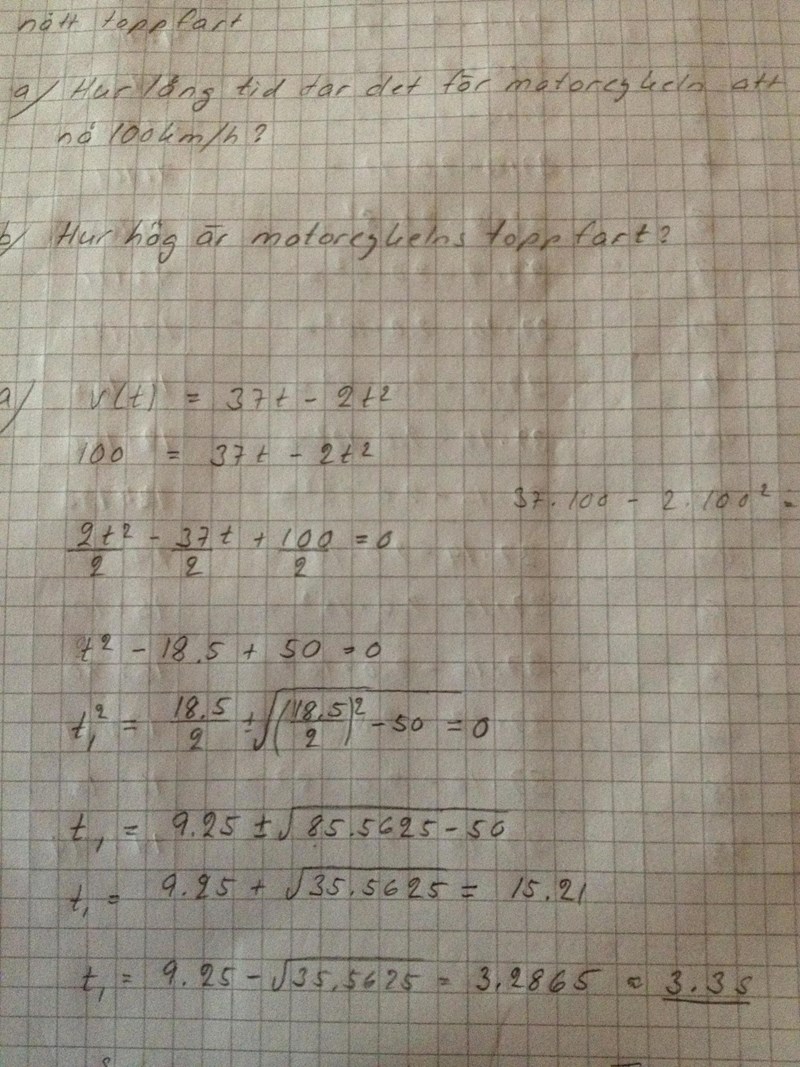 nått toppfart
a) Hur lång tid tar det för motorcykeln att
nå 100km/h?
b) Hur hög är motorcykelns toppfart?
a) v(t) = 37t - 2t²
100 = 37t - 2t²
37·100 - 2·100² =
2t²/2 - 37t/2 + 100/2 = 0
t² - 18.5 + 50 = 0
t₁² = 18.5/2 ± √((18.5/2)² - 50 = 0
t₁ = 9.25 ± √85.5625 - 50
t₁ = 9.25 + √35.5625 = 15.21
t₁ = 9.25 - √35.5625 = 3,2865 ≈ 3.3s